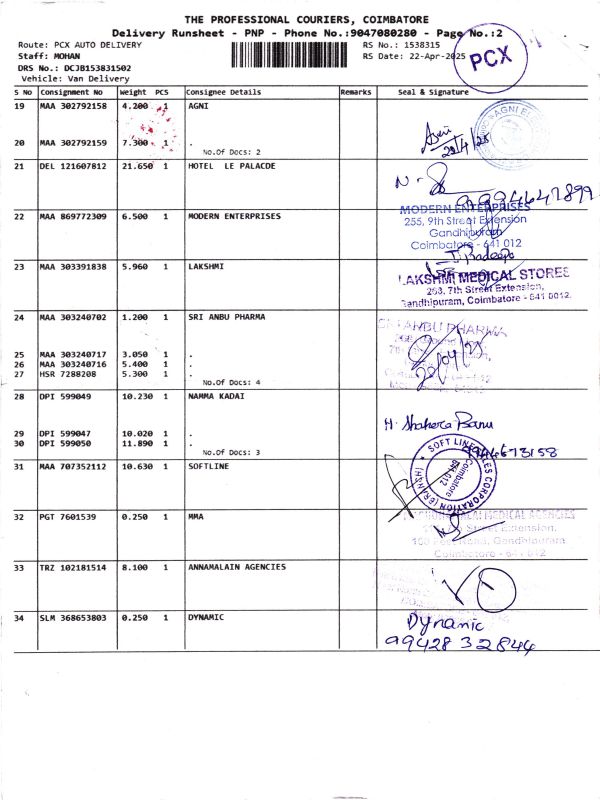 THE PROFESSIONAL COURIERS, COIMBATORE
Delivery Runsheet - PNP - Phone No.:9047080280 - Page No.:2
Route: PCX AUTO DELIVERY RS No.: 1538315
Staff: MOHAN RS Date: 22-Apr-2025
PCX
DRS No.: DCJB153831502
Vehicle: Van Delivery
S No Consignment No Weight PCS Consignee Details Remarks Seal & Signature
19 MAA 302792158 4.200 1 AGNI
20 MAA 302792159 7.300 1 .
No.Of Docs: 2
21 DEL 121607812 21.650 1 HOTEL LE PALACDE
22 MAA 869772309 6.500 1 MODERN ENTERPRISES
MODERN ENTERPRISES
255, 9th Street Extension
Gandhipuram
Coimbatore - 641 012
23 MAA 303391838 5.960 1 LAKSHMI
LAKSHMI MEDICAL STORES
7th Street Extension,
Gandhipuram, Coimbatore - 641 012.
24 MAA 303240702 1.200 1 SRI ANBU PHARMA
SRI ANBU PHARMA
25 MAA 303240717 3.050 1 .
26 MAA 303240716 5.400 1 .
27 HSR 7288208 5.300 1 .
No.Of Docs: 4
28 DPI 599049 10.230 1 NAMMA KADAI
H. Shahera Banu
29 DPI 599047 10.020 1 .
30 DPI 599050 11.890 1 .
No.Of Docs: 3
31 MAA 707352112 10.630 1 SOFTLINE
Coimbatore
641 012
32 PGT 7601539 0.250 1 MMA
MEDICAL AGENCIES
Street Extension,
Gandhipuram
Coimbatore - 641 012
33 TRZ 102181514 8.100 1 ANNAMALAIN AGENCIES
34 SLM 368653803 0.250 1 DYNAMIC
Dynamic
99428 32844